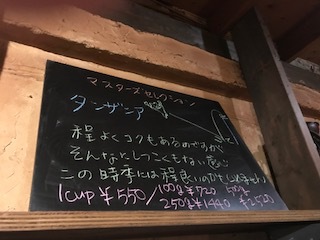 マスターズセレクション
タンザニア
程よくコクもあるのですが
そんなにしつこくもない感じ
この時季には程良いのかもしれません
1cup ¥550/100g ¥720 500g
250g ¥1440 ¥2500